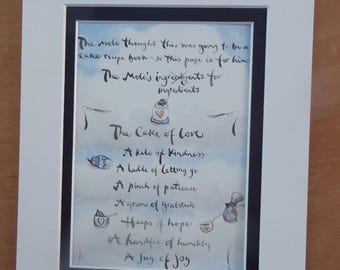 The Mole thought this was going to be a
cake recipe book - so this page is for him
The Mole's ingredients for
ingredients
The Cake of Love
A kilo of Kindness
A ladle of letting go
A pinch of patience
A gram of gratitude
Heaps of hope
A handful of humility
A Jug of Joy